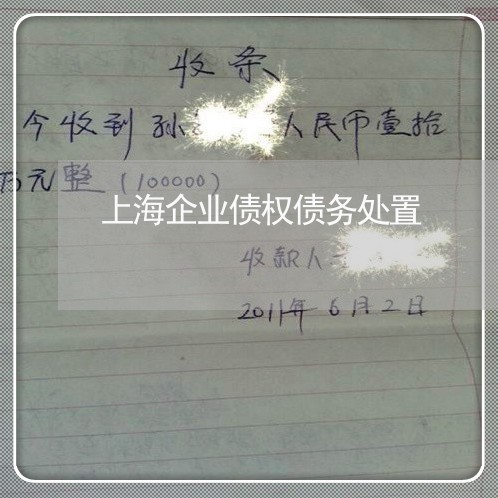 收条
今收到孙 人民币壹拾
万元整（100000）
上海企业债权债务处置
收款人
2011年6月2日